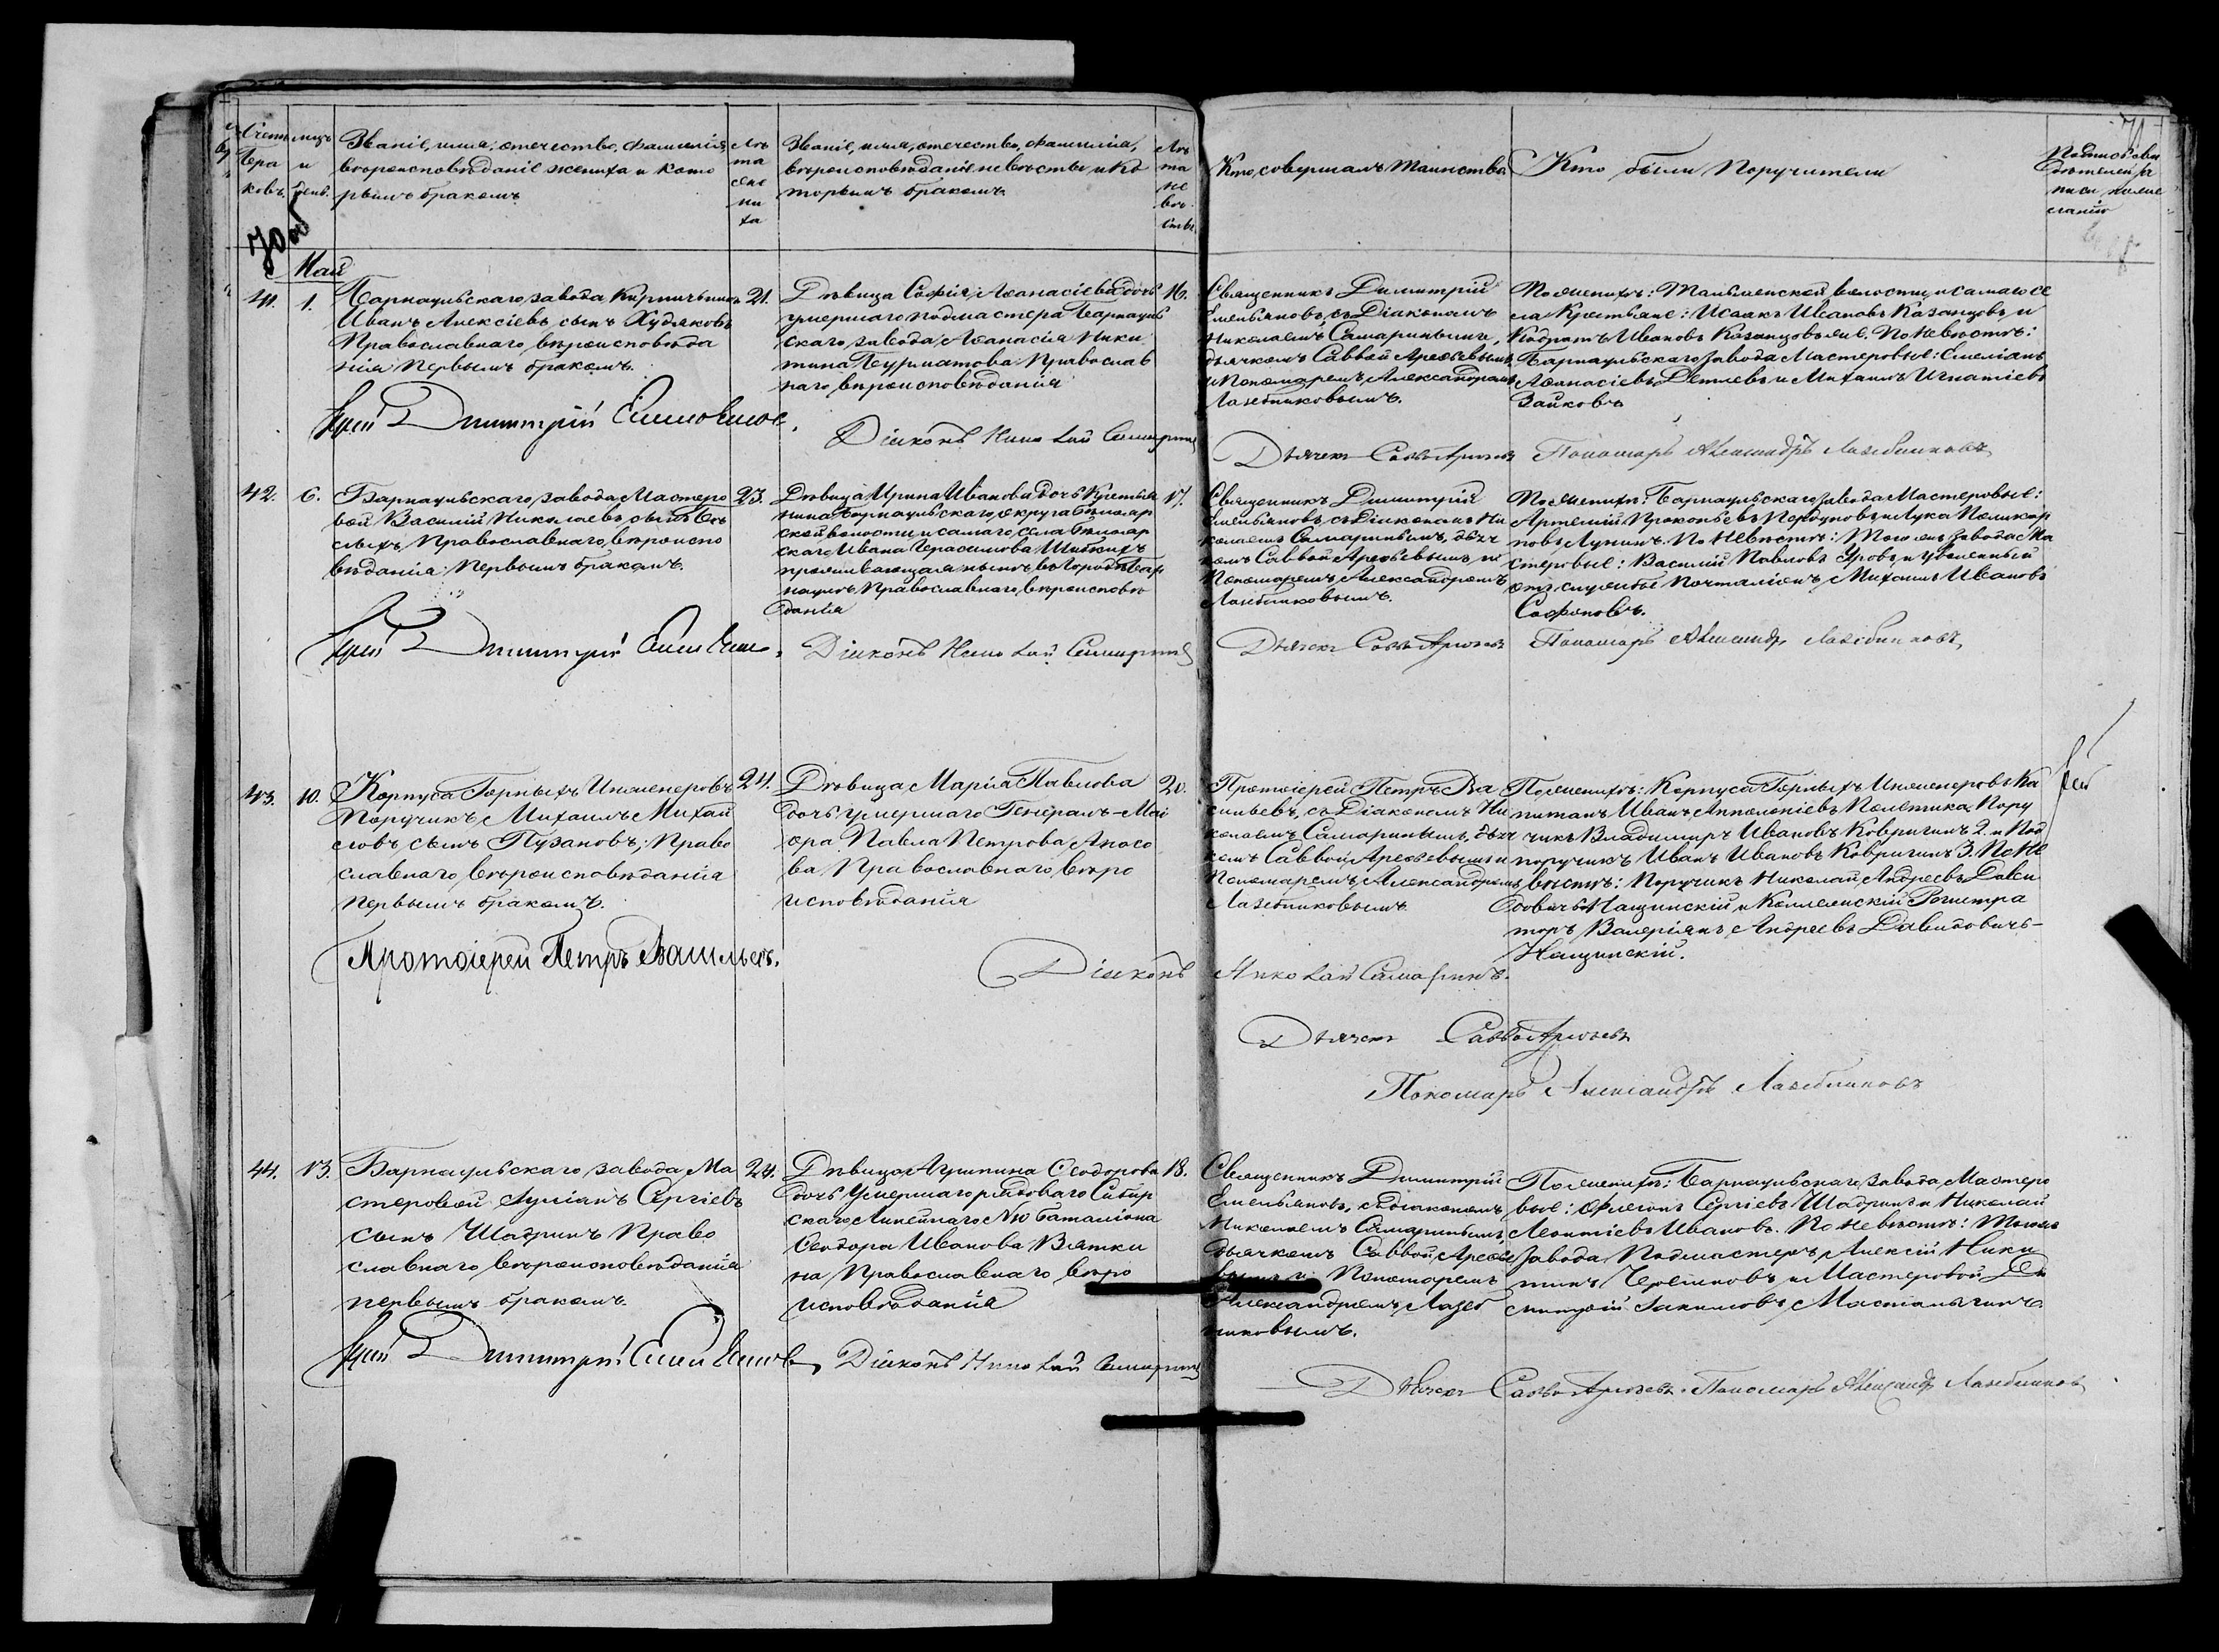 Счетъ
бра
ковъ.
мѣсяцъ
и
день.
Званіе, имя, отечество, фамилія,
вѣроисповѣданіе жениха и кото
рымъ бракомъ
Лѣ
та
жe
ни
ха
Званіе, имя, отечество, фамилія,
вѣроисповѣданіе невѣсты и ко
торымъ бракомъ.
Лѣ
та
не
вѣ
сты
Кто совершалъ Таинство.
Кто были Поручители
70 об
Май
41.
1.
Барнаульскаго завода Кирпичникъ
Иванъ Алексіевъ сынъ Худяковъ
Православнаго вѣроисповѣда
нія Первымъ бракомъ.
21.
Дѣвица Софія Аѳанасіева дочь
умершаго подмастера Барнауль
скаго завода Аѳанасія Ники
тина Бурматова Православ
наго вѣроисповѣданія
16.
Священникъ Димитрій
Емельяновъ, съ Діакономъ
Николаемъ Самаринымъ,
дьячкомъ Саввой Арефьевымъ
и Пономаремъ Александромъ
Лазебниковымъ.
По женихѣ: Тальменской волости и самаго се
ла Крестьяне: Исаакъ Ивановъ Казанцовъ и
Кодратъ Ивановъ Казанцовъ же. По невѣстѣ:
Барнаульскаго завода Мастеровые: Емеліанъ
Аѳанасіевъ и Михаилъ Игнатіевъ
Зайковъ
Іерей Димитрій Емельяновъ.
Діаконъ Николай Самаринъ
Дьячекъ Савва Арефьевъ
Пономарь Александръ Лазебниковъ
42.
6.
Барнаульскаго завода Мастеро
вой Василій Николаевъ сынъ Бѣ
лыхъ Православнаго вѣроиспо
вѣданія Первымъ бракомъ.
23.
Дѣвица Ирина Иванова дочь Крестья
нина Барнаульскаго округа Бѣлояр
ской волости и самаго села Бѣлояр
скаго Ивана Герасимова
проживающая нынѣ въ Городѣ Бар
наулѣ Православнаго вѣроисповѣ
данія
17.
Священникъ Димитрій
Емельяновъ, съ Діакономъ Ни
колаемъ Самаринымъ, дьяч
комъ Саввой Арефьевымъ и
Пономаремъ Александромъ
Лазебниковымъ.
По женихѣ: Барнаульскаго завода Мастеровые:
Артемій Прокопьевъ и Лука Поликар
повъ Лунинъ. По Невѣстѣ: Того же завода Ма
стеровые: Василій Павловъ и уволенный
отъ службы Почталіонъ Михаилъ Ивановъ
Сафоновъ.
Іерей Димитрій Емельяновъ.
Діаконъ Николай Самаринъ
Дьячекъ Савва Арефьевъ
Пономарь Александръ Лазебниковъ
43.
10.
Корпуса Горныхъ Инженеровъ
Поручикъ Михаилъ Михай
ловъ сынъ Пузановъ; Право
славнаго вѣроисповѣданія
первымъ бракомъ.
24.
Дѣвица Марія Павлова
дочь умершаго Генералъ-Маі
ора Павла Петрова Аносо
ва Православнаго вѣро
исповѣданія
20.
Протоіерей Петръ Ва
сильевъ, съ Діакономъ Ни
колаемъ Самаринымъ, дьяч
комъ Саввой Арефьевымъ и
Пономаремъ Александромъ
Лазебниковымъ
По женихѣ: Корпуса Горныхъ Инженеровъ Ка
питанъ Иванъ Апполоніевъ Полетика, Пору
чикъ Владимиръ Ивановъ Ковригинъ 2. и Под
поручикъ Иванъ Ивановъ Ковригинъ 3. По не
вѣстѣ: Поручикъ Николай Андреевъ Дави
довичъ-Нащинскій, и Коллежскій Регистра
торъ Валеріянъ Андреевъ Давидовичъ-
Нащинскій.
Протоіерей Петръ Васильевъ.
Діаконъ Николай Самаринъ.
Дьячекъ Савва Арефьевъ
Пономарь Александръ Лазебниковъ
44.
13.
Барнаульскаго завода Ма
стеровой Лукіанъ Сергіевъ
сынъ Шадринъ Право
славнаго вѣроисповѣданія
первымъ бракомъ.
24.
Дѣвица Агрипина Ѳеодорова
дочь Умершаго рядоваго Сибир
скаго Линейнаго №10 баталіона
Ѳеодора Иванова Вятки
на Православнаго вѣро
исповѣданія
18.
Священникъ Димитрій
Емельяновъ, съ діакономъ
Николаемъ Самаринымъ,
дьячкомъ Саввой Арефье
вымъ и Пономаремъ
Александромъ Лазеб
никовымъ.
По женихѣ: Барнаульскаго завода Мастеро
вые: Сергіевъ Шадринъ и Николай
Леонтіевъ Ивановъ. По невѣстѣ: Тогоже
завода Подмастеръ Алексій Ники
тинъ и Мастеровой Ди
митрій
Іерей Димитрій Емельяновъ,
Діаконъ Николай Самаринъ
Дьячекъ Савва Арефьевъ. Пономарь Александръ Лазебниковъ